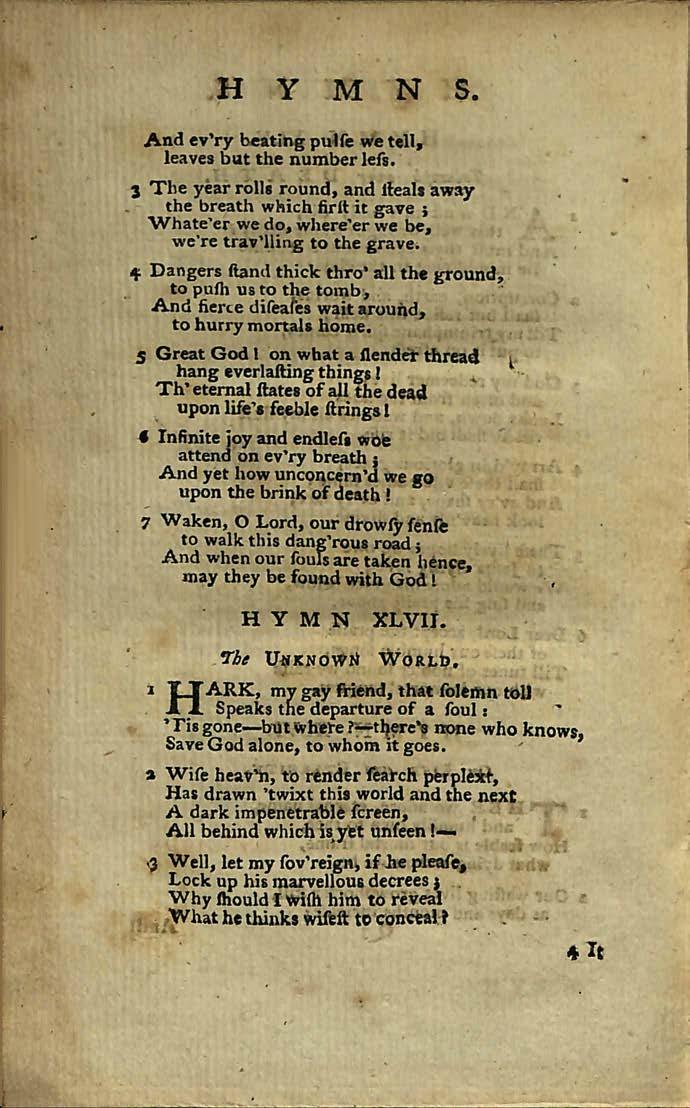 HYMNS.
And ev'ry beating pulſe we tell,
leaves but the number leſs.
3 The year rolls round, and ſteals away
the breath which firſt it gave ;
Whate'er we do, where'er we be,
we're trav'lling to the grave.
4 Dangers ſtand thick thro' all the ground,
to puſh us to the tomb,
And fierce diſeaſes wait around,
to hurry mortals home.
5 Great God ! on what a ſlender thread
hang everlaſting things !
Th' eternal ſtates of all the dead
upon life's feeble ſtrings !
6 Infinite joy and endleſs woe
attend on ev'ry breath ;
And yet how unconcern'd we go
upon the brink of death !
7 Waken, O Lord, our drowſy ſenſe
to walk this dang'rous road ;
And when our ſouls are taken hence,
may they be found with God !
HYMN XLVII.
The UNKNOWN WORLD.
1 HARK, my gay friend, that ſolemn toll
Speaks the departure of a ſoul :
'Tis gone—but where ?—there's none who knows,
Save God alone, to whom it goes.
2 Wiſe heav'n, to render ſearch perplext,
Has drawn 'twixt this world and the next
A dark impenetrable ſcreen,
All behind which is yet unſeen !—
3 Well, let my ſov'reign, if he pleaſe,
Lock up his marvellous decrees ;
Why ſhould I wiſh him to reveal
What he thinks wiſeſt to conceal ?
4 It